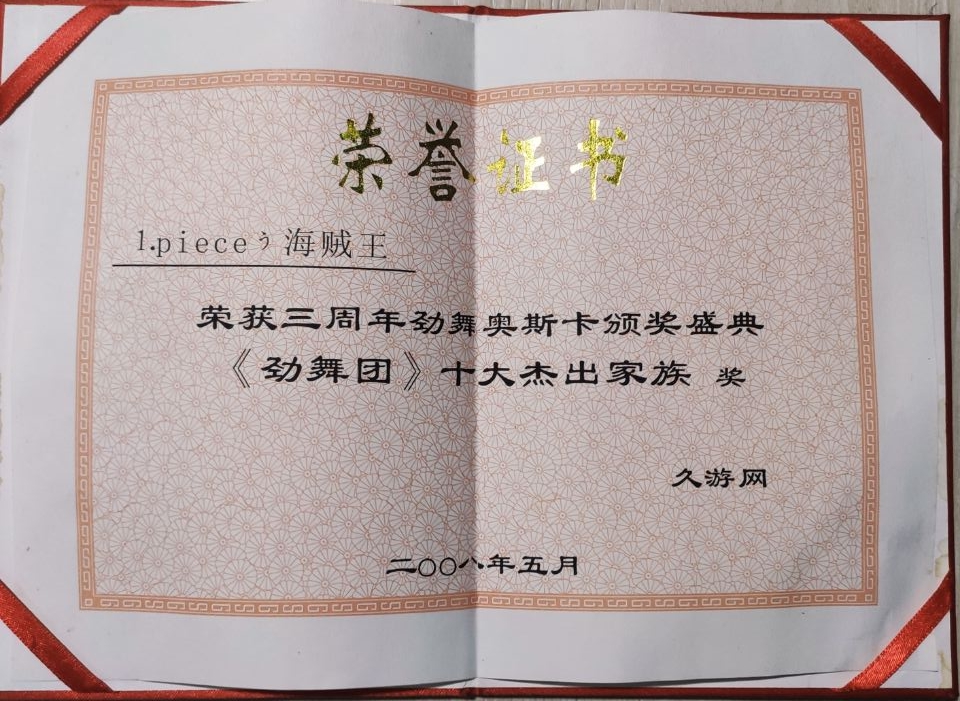 荣誉证书
1.pieceぅ海贼王
荣获三周年劲舞奥斯卡颁奖盛典
《劲舞团》十大杰出家族 奖
久游网
二〇〇八年五月